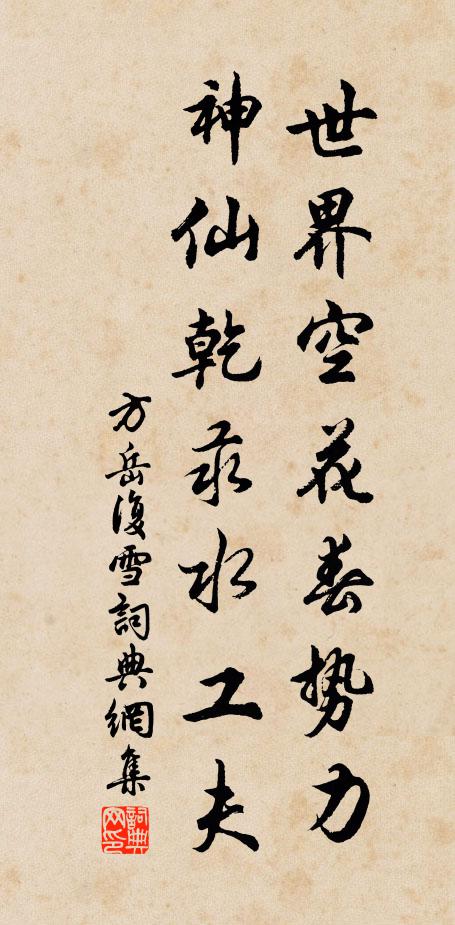 世界空花春势力
神仙乾汞水工夫
方岳復雪詞典網集
詞典网印